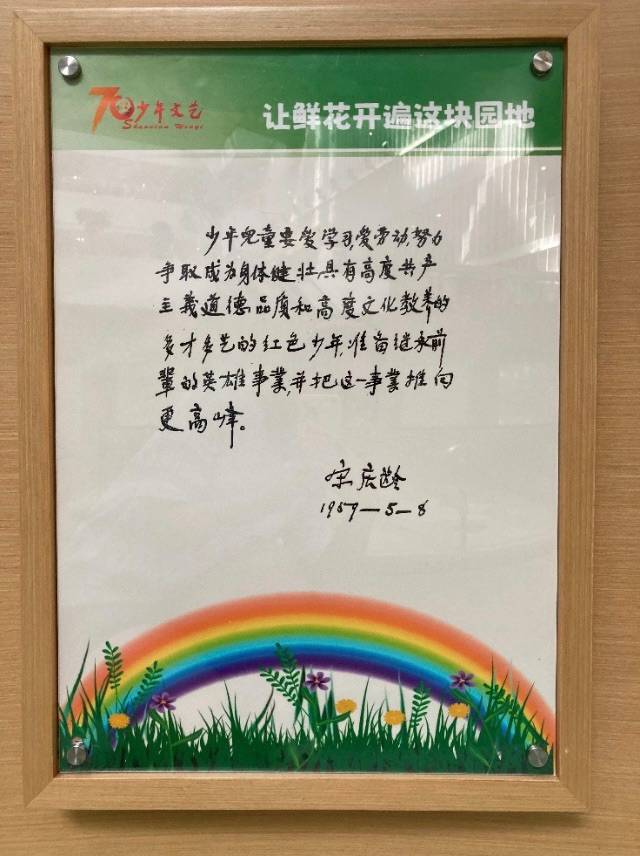 70少年文艺
Shaonian Wenyi
让鲜花开遍这块园地
少年兒童要爱学习,爱劳动,努力
争取成为身体健壮,具有高度共产
主義道德品质和高度文化教养的
多才多艺的红色少年,准备继承前
輩的英雄事業,并把这一事業推向
更高峰。
宋庆龄
1959—5—8